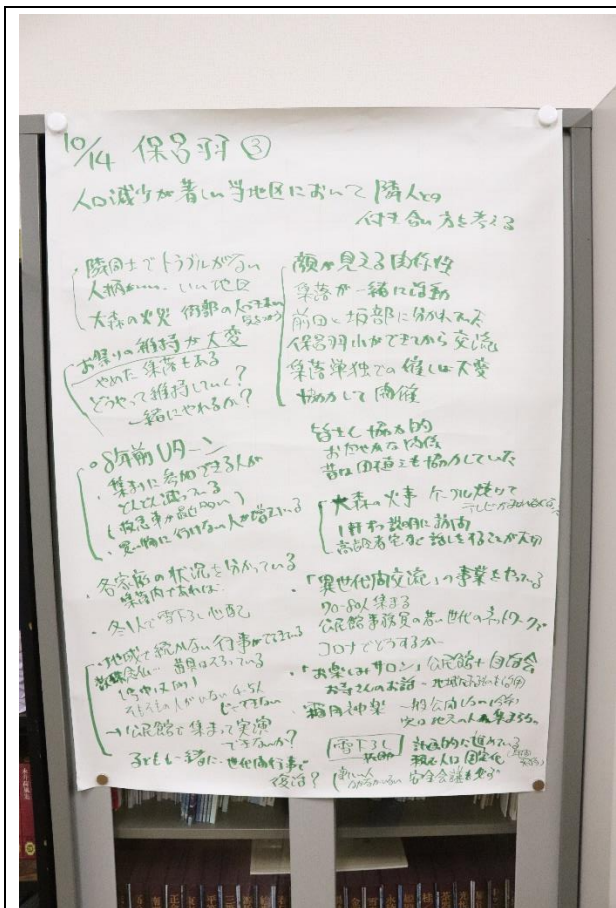 10/14 保呂羽 ③
人口減少が著しい当地区において 隣人との
付き合い方を考える
・隣同士でトラブルがない
人柄がいい、いい地区
大森の火災
お祭りの維持が大変
やめた集落もある
どうやって維持していく?
一緒にやれるか?
8年前Uターン
・集まりに参加できる人が
どんどん減っている
(救急車が
・買い物に行けない人が増えている
・各家庭の状況を分かっている
集落内であれば
・冬1人で雪下し心配
・地域で続かない行事がでてきている
4~5人
→公民館で集まって実演
できないか?
子どもも一緒に・世代間行事で
復活?
顔が見える関係性
集落が一緒に活動
前田と坂部に分かれてた
保呂羽小ができてから交流
集落単独での催しは大変
協力して開催
皆さん協力的
おだやかな関係
昔は田植えも協力していた
大森の火事 ケーブル焼けて
1軒ずつ説明に訪問
高齢者宅など話しをすることが大切
・「異世代間交流」の事業をやっている
70-80人集まる
公民館事務員の若い世代のネットワークで
コロナでどうするか
・「お楽しみサロン」公民館+自治会
お寺さんのお話
・霜月神楽
雪下し
計画的に進めている
頼む人は固定化
安全会議も必ず